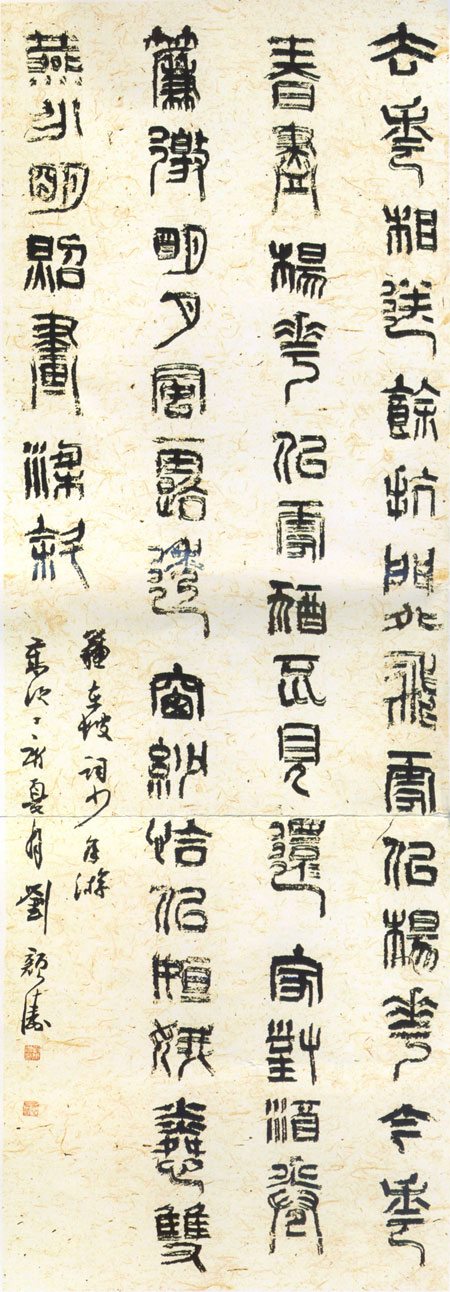 去年相送餘杭門外飛雪似楊花今年
春盡楊花似雪猶不見還家對酒卷
簾邀明月風露透窗紗恰似姮娥憐雙
燕分明照畫梁斜
蘇東坡詞少年游
歲次丁亥夏月劉顏濤